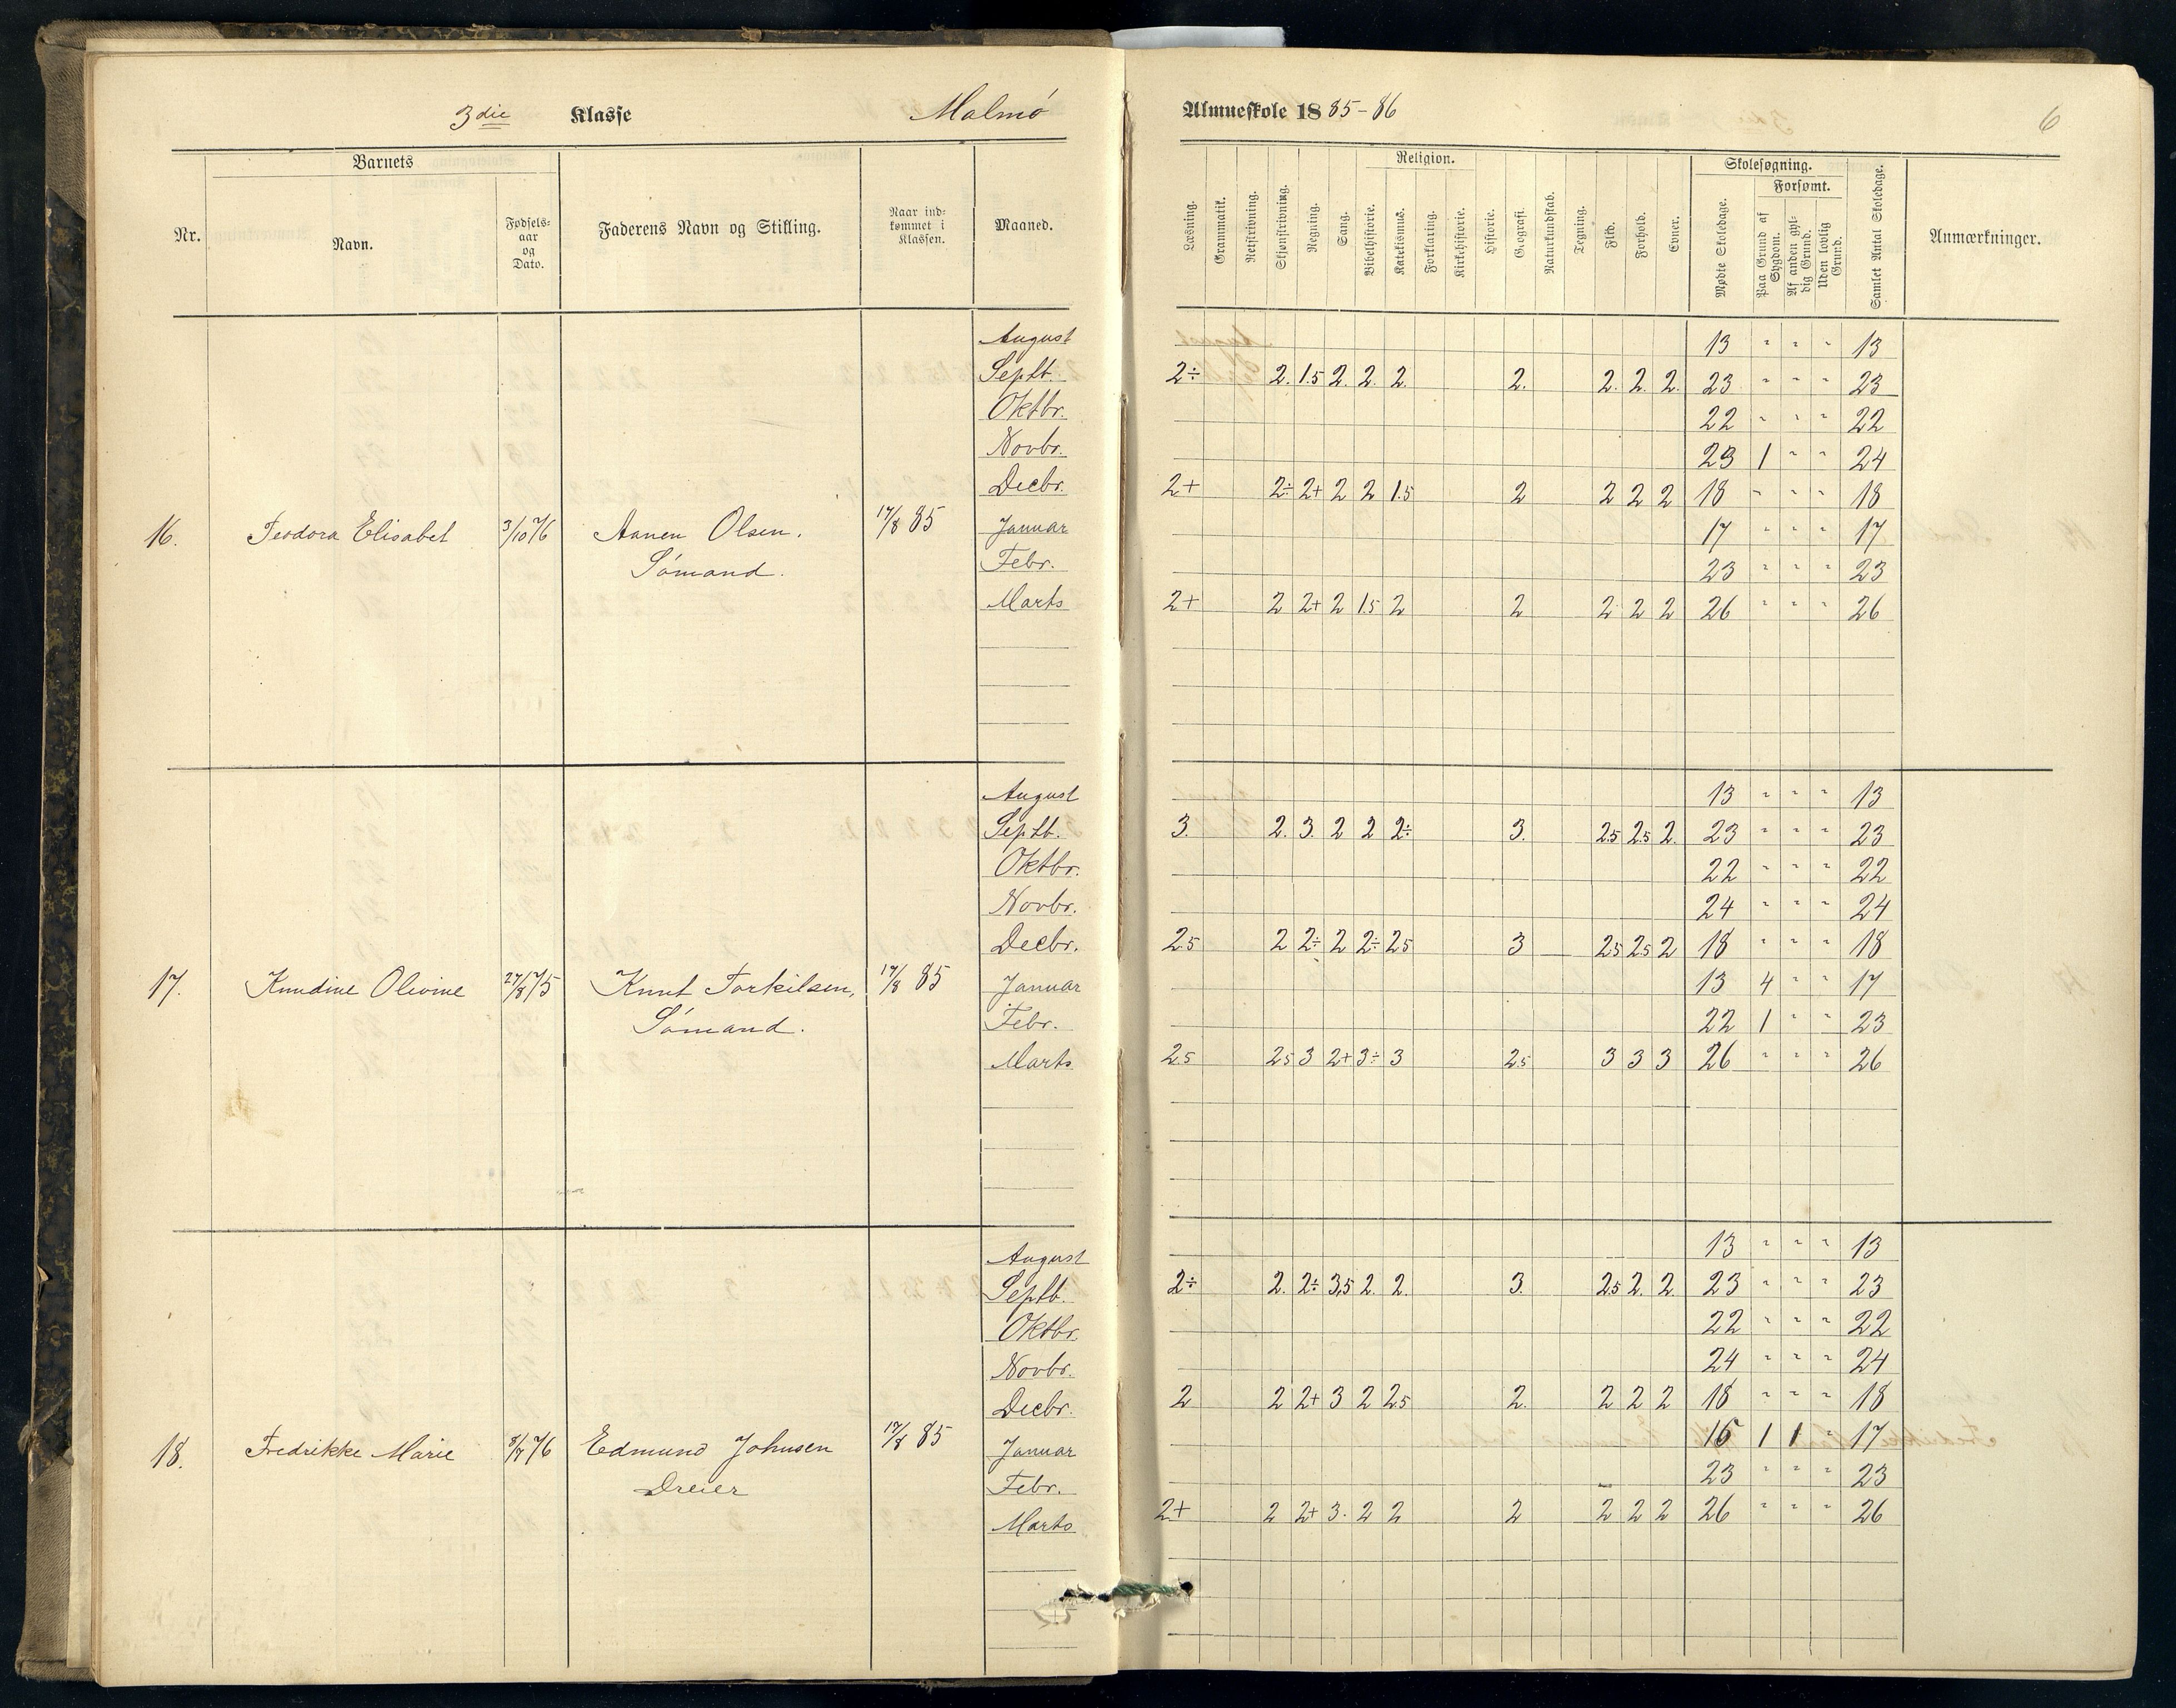 3die Klasse Malmö Almueskole 1885-86 6
Barnets
Nr. Navn. Fødselsaar og Dato. Faderens Navn og Stilling. Naar indkommet i Klassen. Maaned. Læsning. Grammatik. Retskrivning. Skjønskrivning. Regning. Sang. Religion. Bibelhistorie. Katekismus. Forklaring. Kirkehistorie. Historie. Geografi. Naturkundskab. Tegning. Flid. Forhold. Evner. Skolesøgning. Mødte Skoledage. Forsømt. Paa Grund af Sygdom. Af anden gyldig Grund. Uden lovlig Grund. Samlet Antal Skoledage. Anmærkninger.
August 13 " " " 13
Septb. 2÷ 2. 1.5 2. 2. 2. 2. 2. 2. 2. 23 " " " 23
Oktbr. 22 " " " 22
Novbr. 23 1 " " 24
Decbr. 2+ 2÷ 2+ 2 2 1.5 2 2 2 2 18 " " " 18
16. Teodora Elisabet 3/10 76 Aanen Olsen. 17/8 85 Januar 17 " " " 17
Sømand. Febr. 23 " " " 23
Marts 2+ 2 2+ 2 1.5 2 2 2 2 2 26 " " " 26
August 13 " " " 13
Septb. 3. 2. 3. 2 2 2÷ 3. 2.5 2.5 2. 23 " " " 23
Oktbr. 22 " " " 22
Novbr. 24 " " " 24
Decbr. 2.5 2 2÷ 2 2÷ 2.5 3 2.5 2.5 2 18 " " " 18
17. Knudine Olivine 27/8 75 Knut Torkilsen, 17/8 85 Januar 13 4 " " 17
Sømand. Febr. 22 1 " " 23
Marts 2.5 2.5 3 2+ 3÷ 3 2.5 3 3 3 26 " " " 26
August 13 " " " 13
Septb. 2÷ 2. 2÷ 3,5 2. 2. 3. 2.5 2. 2. 23 " " " 23
Oktbr. 22 " " " 22
Novbr. 24 " " " 24
Decbr. 2 2 2+ 3 2 2.5 2. 2 2 2 18 " " " 18
18. Fredrikke Marie 76 Edmund Johnsen 17/8 85 Januar 15 1 1 " 17
Dreier Febr. 23 " " " 23
Marts 2+ 2 2+ 3. 2 2 2 2 2 2 26 " " " 26